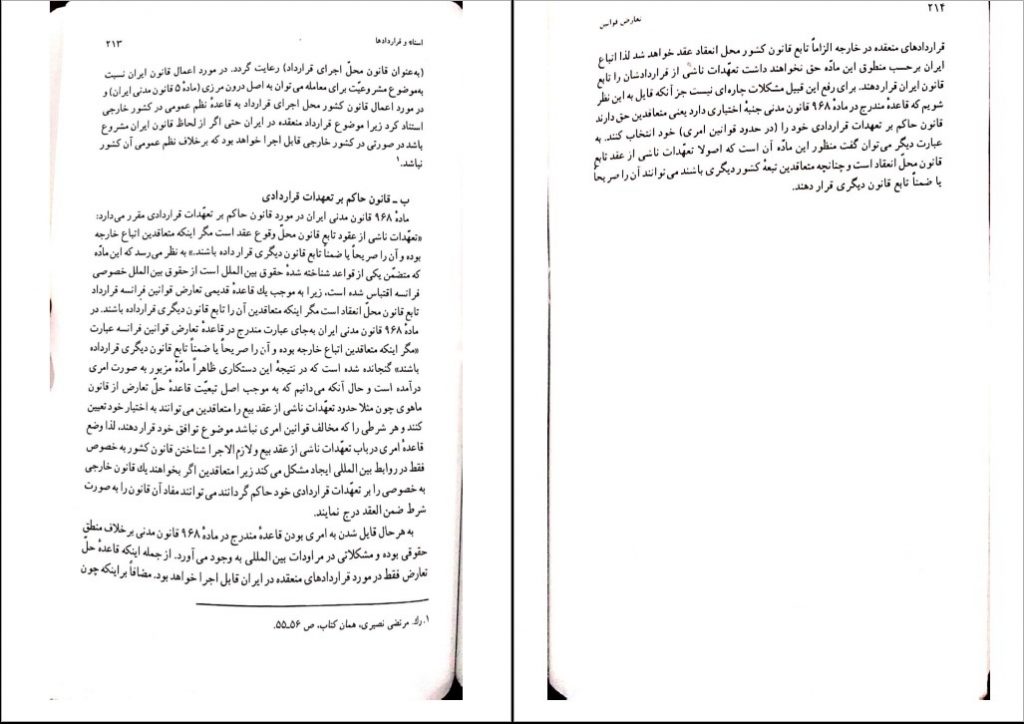 اسناد و قراردادها ۲۱۳
(به‌عنوان قانون محلّ اجرای قرارداد) رعایت گردد. در مورد اعمال قانون ایران نسبت
به‌موضوع مشروعیّت برای معامله می‌توان به اصل درون مرزی (مادهٔ ۵ قانون مدنی ایران) و
در مورد اعمال قانون کشور محل اجرای قرارداد به قاعدهٔ نظم عمومی در کشور خارجی
استناد کرد زیرا موضوع قرارداد منعقده در ایران حتی اگر از لحاظ قانون ایران مشروع
باشد در صورتی در کشور خارجی قابل اجرا خواهد بود که برخلاف نظم عمومی آن کشور
نباشد.۱
ب ـ قانون حاکم بر تعهدات قراردادی
مادهٔ ۹۶۸ قانون مدنی ایران در مورد قانون حاکم بر تعهّدات قراردادی مقرر می‌دارد:
«تعهّدات ناشی از عقود تابع قانون محلّ وقوع عقد است مگر اینکه متعاقدین اتباع خارجه
بوده و آن را صریحاً یا ضمناً تابع قانون دیگری قرار داده باشند.» به نظر می‌رسد که این مادّه
که متضمّن یکی از قواعد شناخته شدهٔ حقوق بین الملل است از حقوق بین‌الملل خصوصی
فرانسه اقتباس شده است، زیرا به موجب یك قاعدهٔ قدیمی تعارض قوانین فرانسه قرارداد
تابع قانون محلّ انعقاد است مگر اینکه متعاقدین آن را تابع قانون دیگری قرارداده باشند. در
مادهٔ ۹۶۸ قانون مدنی ایران به‌جای عبارت مندرج در قاعدهٔ تعارض قوانین فرانسه عبارت
«مگر اینکه متعاقدین اتباع خارجه بوده و آن را صریحاً یا ضمناً تابع قانون دیگری قرارداده
باشند» گنجانده شده است که در نتیجهٔ این دستکاری ظاهراً مادّهٔ مزبور به صورت امری
درآمده است و حال آنکه می‌دانیم که به موجب اصل تبعیّت قاعدهٔ حلّ تعارض از قانون
ماهوی چون مثلا حدود تعهّدات ناشی از عقد بیع را متعاقدین می‌توانند به اختیار خود تعیین
کنند و هر شرطی را که مخالف قوانین امری نباشد موضوع توافق خود قرار دهند، لذا وضع
قاعدهٔ امری درباب تعهّدات ناشی از عقد بیع و لازم‌الاجرا شناختن قانون کشور به خصوص
فقط در روابط بین المللی ایجاد مشکل می‌کند زیرا متعاقدین اگر بخواهند یك قانون خارجی
به خصوصی را بر تعهّدات قراردادی خود حاکم گردانند می‌توانند مفاد آن قانون را به صورت
شرط ضمن‌العقد درج نمایند.
به هر حال قایل شدن به امری بودن قاعدهٔ مندرج در مادهٔ ۹۶۸ قانون مدنی برخلاف منطق
حقوقی بوده و مشکلاتی در مراودات بین المللی به وجود می‌آورد. از جمله اینکه قاعدهٔ حلّ
تعارض فقط در مورد قراردادهای منعقده در ایران قابل اجرا خواهد بود. مضافاً بر اینکه چون
۱. رك. مرتضی نصیری، همان کتاب، ص ۵۶ـ۵۵.
۲۱۴ تعارض قوانین
قراردادهای منعقده در خارجه الزاماً تابع قانون کشور محل انعقاد عقد خواهد شد لذا اتباع
ایران برحسب منطوق این مادّه حق نخواهند داشت تعهّدات ناشی از قراردادشان را تابع
قانون ایران قرار دهند. برای رفع این قبیل مشکلات چاره‌ای نیست جز آنکه قایل به این نظر
شویم که قاعدهٔ مندرج در مادهٔ ۹۶۸ قانون مدنی جنبهٔ اختیاری دارد یعنی متعاقدین حق دارند
قانون حاکم بر تعهدات قراردادی خود را (در حدود قوانین امری) خود انتخاب کنند. به
عبارت دیگر می‌توان گفت منظور این مادّه آن است که اصولا تعهّدات ناشی از عقد تابع
قانون محلّ انعقاد است و چنانچه متعاقدین تبعهٔ کشور دیگری باشند می‌توانند آن را صریحاً
یا ضمناً تابع قانون دیگری قرار دهند.